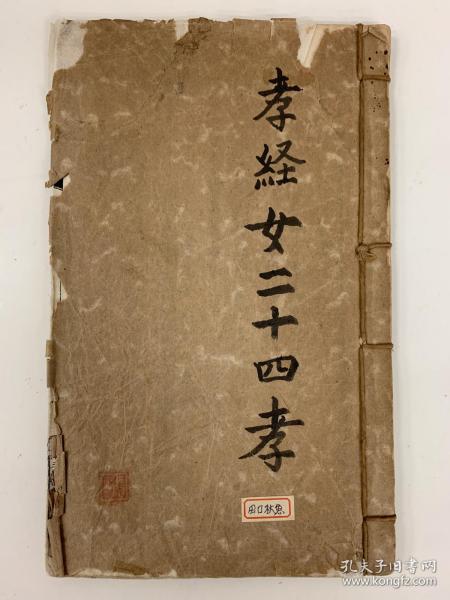 孝経女二十四孝
孔夫子旧书网
www.kongfz.com